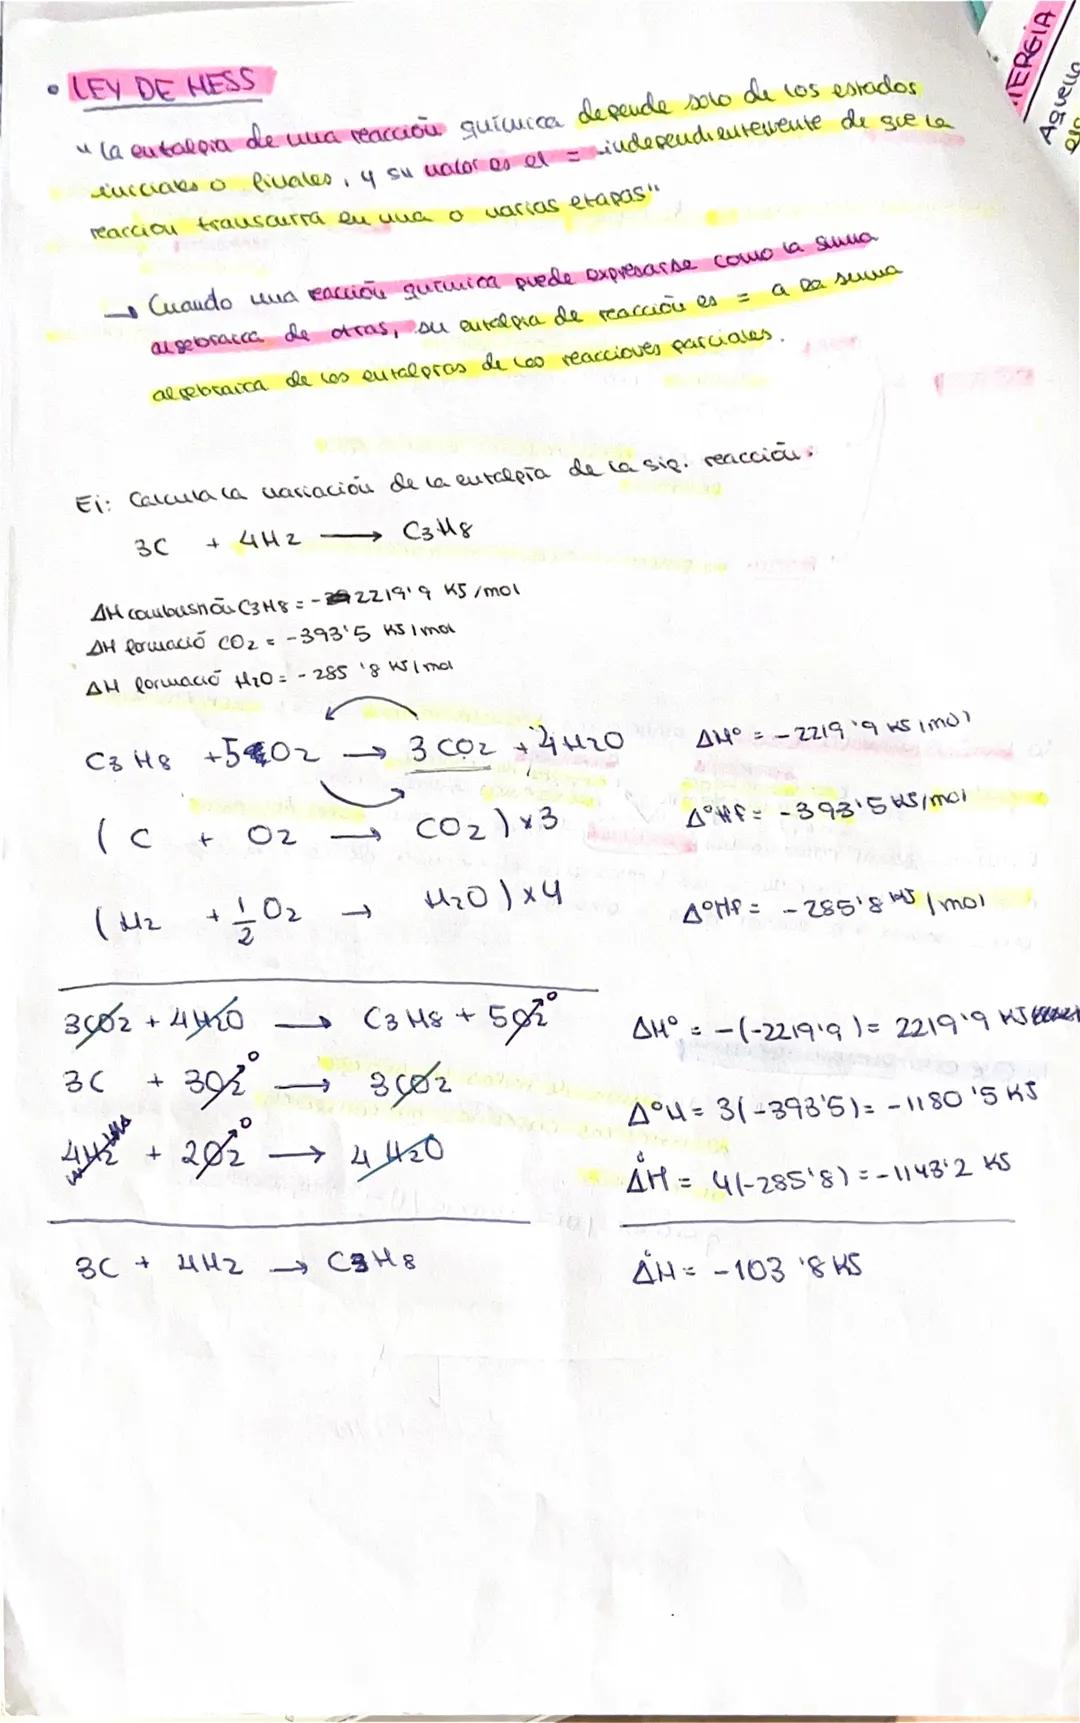 • LEY DE HESS
"La entalpia de una reacción química depende solo de los estados
iniciales o finales, y su valor es el = independientemente de que la
reacción transcurra en una o varias etapas"
→ Cuando una reacción química puede expresarse como la suma
algebraica de otras, su entalpia de reacción es = a la suma
algebraica de las entalpias de las reacciones parciales.
Ej: Calcula la variación de la entalpía de la sig. reacción.
3C + 4H2 → C3H8
ΔH combustión C3H8 = -2219'9 KJ/mol
ΔH formació CO2 = -393'5 KJ/mol
ΔH formació H2O = -285'8 KJ/mol
C3H8 + 5O2 → 3CO2 + 4H2O ΔHº = -2219'9 KJ/mol
(C + O2 → CO2) x3 ΔºHf = -393'5 KJ/mol
(H2 + 1/2 O2 → H2O) x4 ΔºHf = -285'8 KJ/mol
3CO2 + 4H2O → C3H8 + 5O2 0 ΔHº = -(-2219'9) = 2219'9 KJ
3C + 3O2 0 → 3CO2 ΔºH = 3(-393'5) = -1180'5 KJ
4H2 + 2O2 0 → 4H2O ΔºH = 4(-285'8) = -1143'2 KJ
3C + 4H2 → C3H8 ΔºH = -103'8 KJ
ERGIA
Aquella